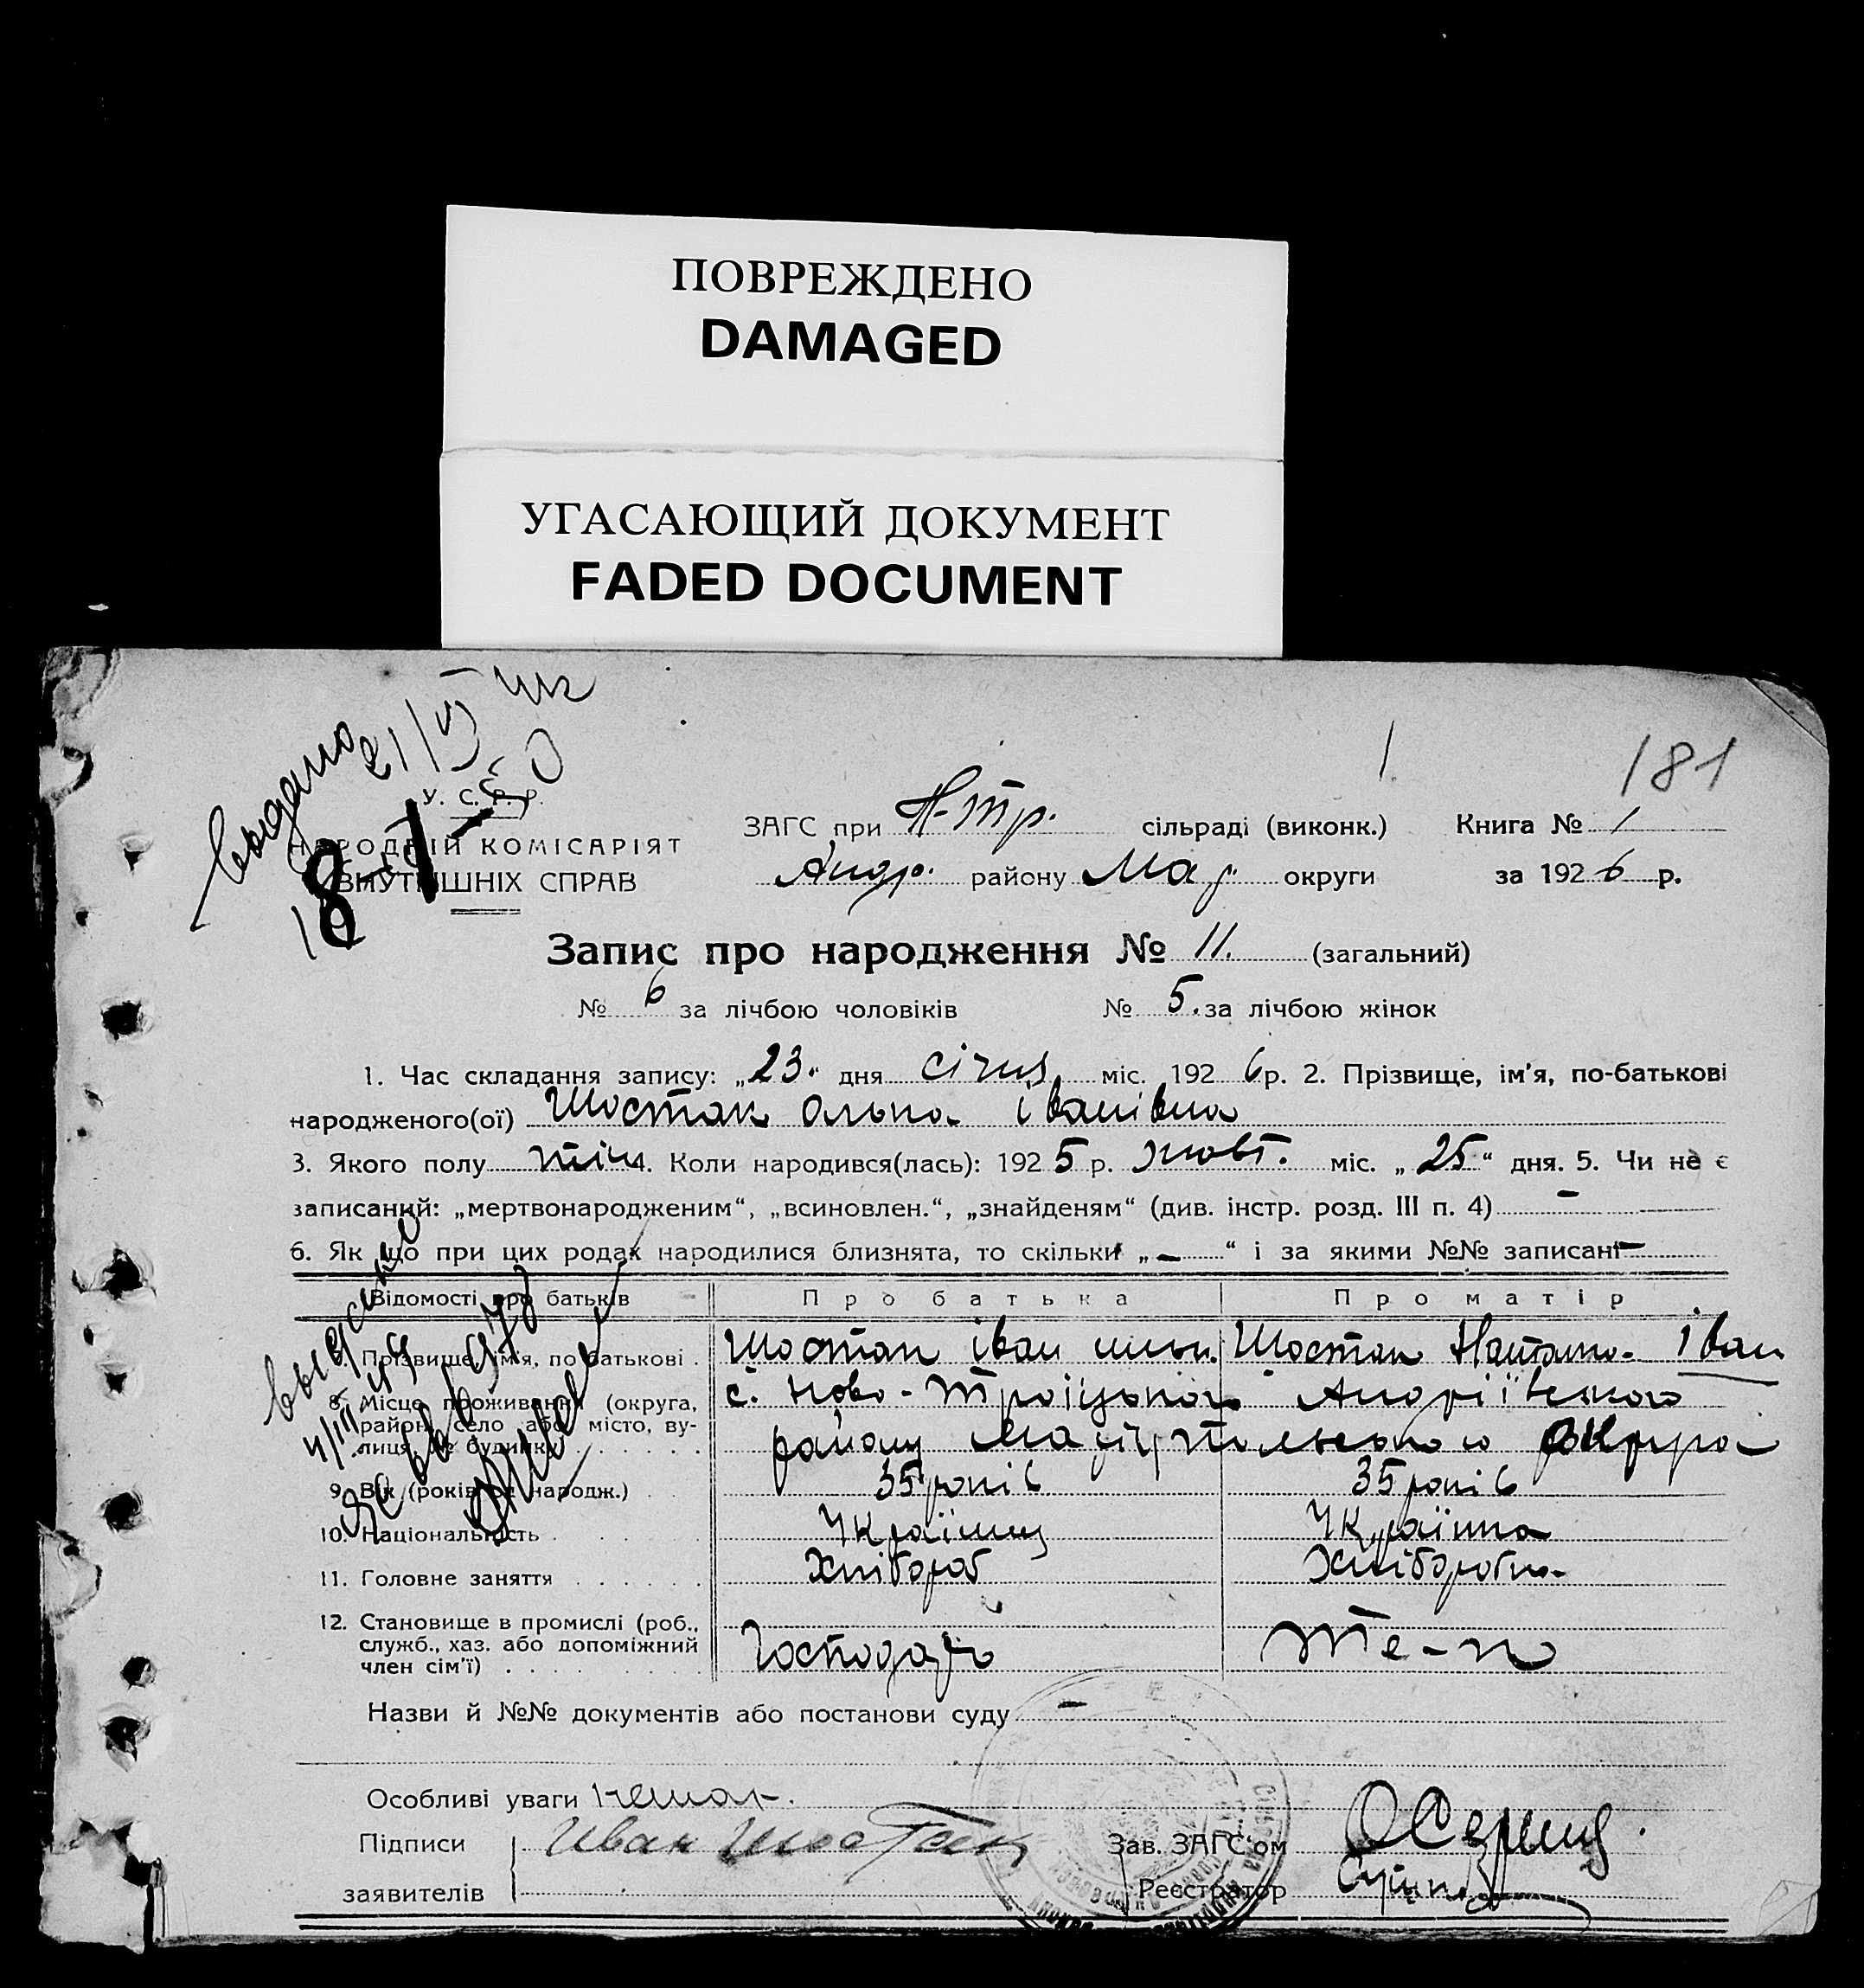 ПОВРЕЖДЕНО
DAMAGED
УГАСАЮЩИЙ ДОКУМЕНТ
FADED DOCUMENT
181
У. С. Р. Р.
НАРОДНІЙ КОМІСАРІЯТ
ВНУТРІШНІХ СПРАВ
ЗАГС при Н-Тр. сільраді (виконк.) Книга № 1
Андр. району Мар. округи за 1926 р.
Запис про народження № 11. (загальний)
№ 6 за лічбою чоловіків № 5. за лічбою жінок
1. Час складання запису: „23“ дня січня міс. 1926 р. 2. Прізвище, ім'я, по-батькові
народженого(ої) Шостак Ольга Іванівна
3. Якого полу жін. 4. Коли народився(лась): 1925 р. жовт. міс. „25“ дня. 5. Чи не є
записаний: „мертвонародженим“, „всиновлен.“, „знайденям“ (див. інстр. розд. III п. 4) –
6. Як що при цих родах народилися близнята, то скільки „–“ і за якими №№ записані –
Відомості про батьків Про батька Про матір
Прізвище, ім'я, по батькові . Шостак Іван Шостак Іван
8. Місце проживання (округа, с. Ново-Троїцького Андріївського
район, село або місто, ву-
лиця, № будинку) району Маріупольського
9. Вік (років від народж.) 35 років 35 років
10. Національність Українец Українка
11. Головне заняття Хлібороб Хліборобка
12. Становище в промислі (роб.,
служб., хаз. або допоміжний
член сім'ї) Господарь Те-ж
Назви й №№ документів або постанови суду –
Особливі уваги немає.
Підписи Иван Шостак Зав. ЗАГС'ом
заявителів Реєстратор